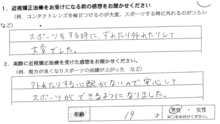 1. 近視矯正治療をお受けになる前の感想をお聞かせください
(例. コンタクトレンズを毎日つけるのが大変、スポーツする時に外れるのがつらい など)
スポーツをする時に、ずれたり外れたりして
大変でした。
2. 実際に近視矯正治療を受けた感想をお聞かせください
(例. 視力が良くなりスポーツの成績が上がった など)
外れたりする心配がないので安心して
スポーツができるようになりました。
年齢 19才 男性・女性